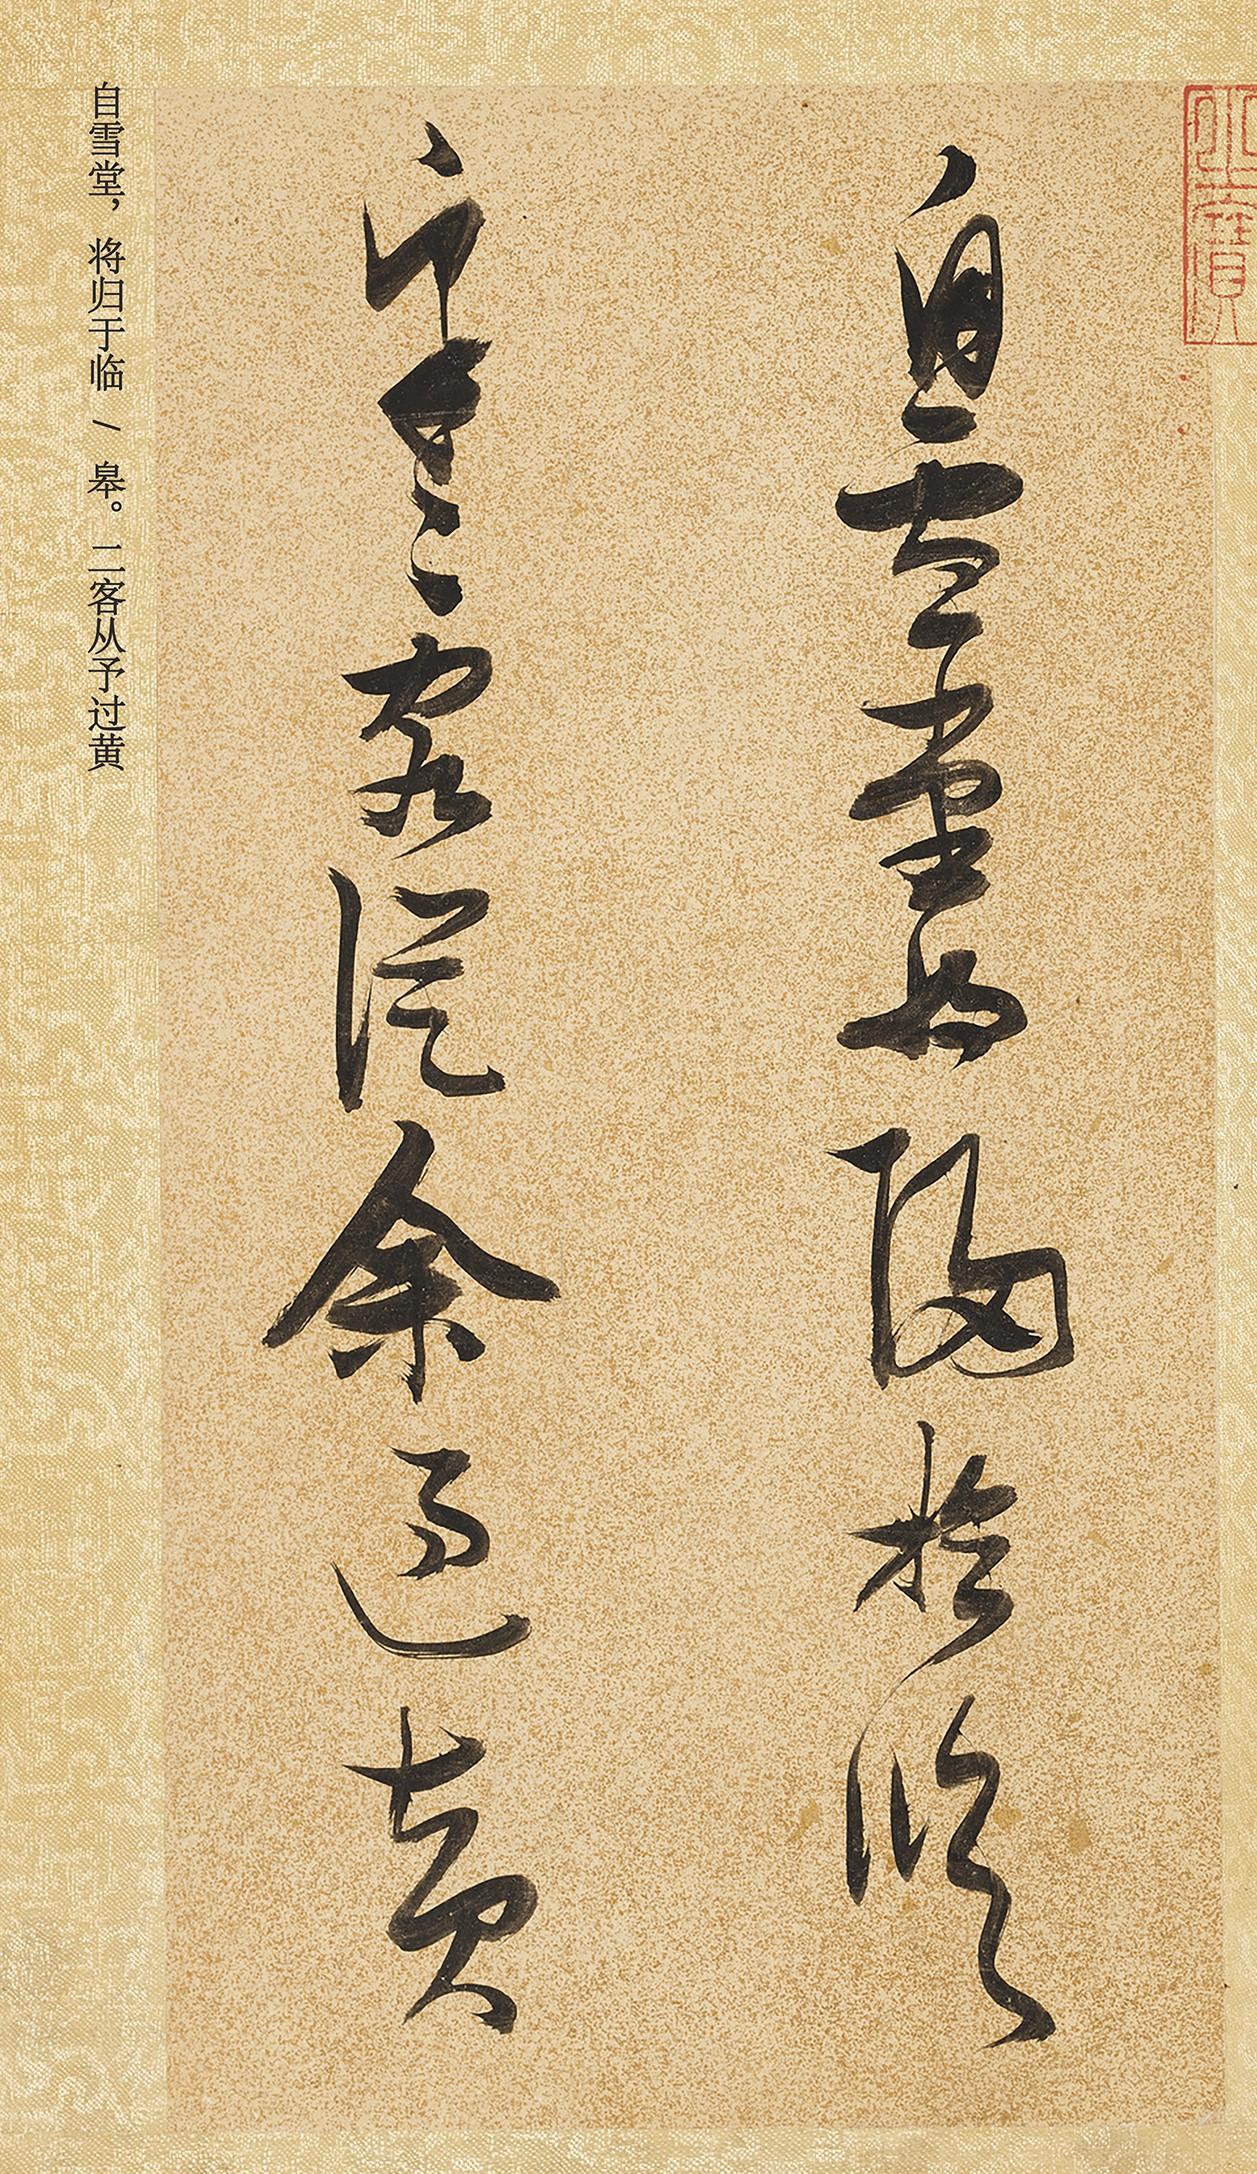 自雪堂将歸於臨
皋二客從余過黃
自雪堂，将归于临 / 皋。二客从予过黄